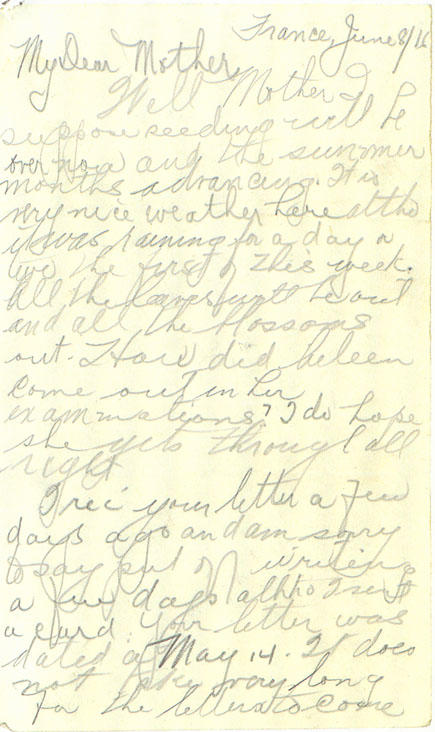 France, June 8/16
My Dear Mother,
Well Mother I
suppose seeding will be
over now and the summer
months advancing. It is
very nice weather here altho
it was raining for a day or
two the first of this week.
All the leaves will be out
and all the blossoms
out. How did Helen
come out in her
examinations? I do hope
she gets through all
right
I rec your letter a few
days ago and am sorry
to say put off writing
a few days altho I sent
a card. Your letter was
dated May 14. It does
not take very long
for the letters to come